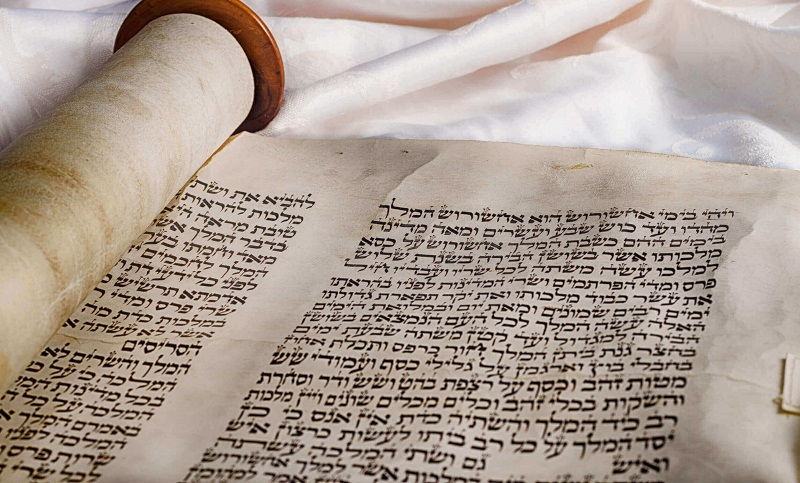 ויהי בימי אחשורוש הוא אחשורוש המלך
מהדו ועד כוש שבע ועשרים ומאה מדינה
בימים ההם כשבת המלך אחשורוש על כסא
מלכותו אשר בשושן הבירה בשנת שלוש
למלכו עשה משתה לכל שריו ועבדיו חיל
פרס ומדי הפרתמים ושרי המדינות לפניו בהראתו
את עשר כבוד מלכותו ואת יקר תפארת גדולתו
ימים רבים שמונים ומאת יום ובמלואת הימים
האלה עשה המלך לכל העם הנמצאים בשושן
הבירה למגדול ועד קטן משתה שבעת ימים
בחצר גנת ביתן המלך חור כרפס ותכלת אחוז
בחבלי בוץ וארגמן על גלילי כסף ועמודי שש
מטות זהב וכסף על רצפת בהט ושש ודר וסחרת
והשקות בכלי זהב וכלים מכלים שונים ויין מלכות
רב כיד המלך והשתיה כדת אין אנס כי כן
יסד המלך על כל רב ביתו לעשות כרצון איש
ואיש גם ושתי המלכה עשתה
המלכות אשר למלך אחשורוש
להביא את ושתי
מלכות להראות
טובת מראה היא
בדבר המלך
מאד וחמתו בערה
המלך לחכמים
לפני כל ידעי דת
אדמתא תרשיש
שרי פרס ומדי
במלכות
אשר לא עשתה
הסריסים
המלך והשרים לא
המלכה כי על כל
בכל מדינות המלך
המלכה על כל
באמרם המלך
המלכה לפניו
שרות פרס ומדי
לכל שרי